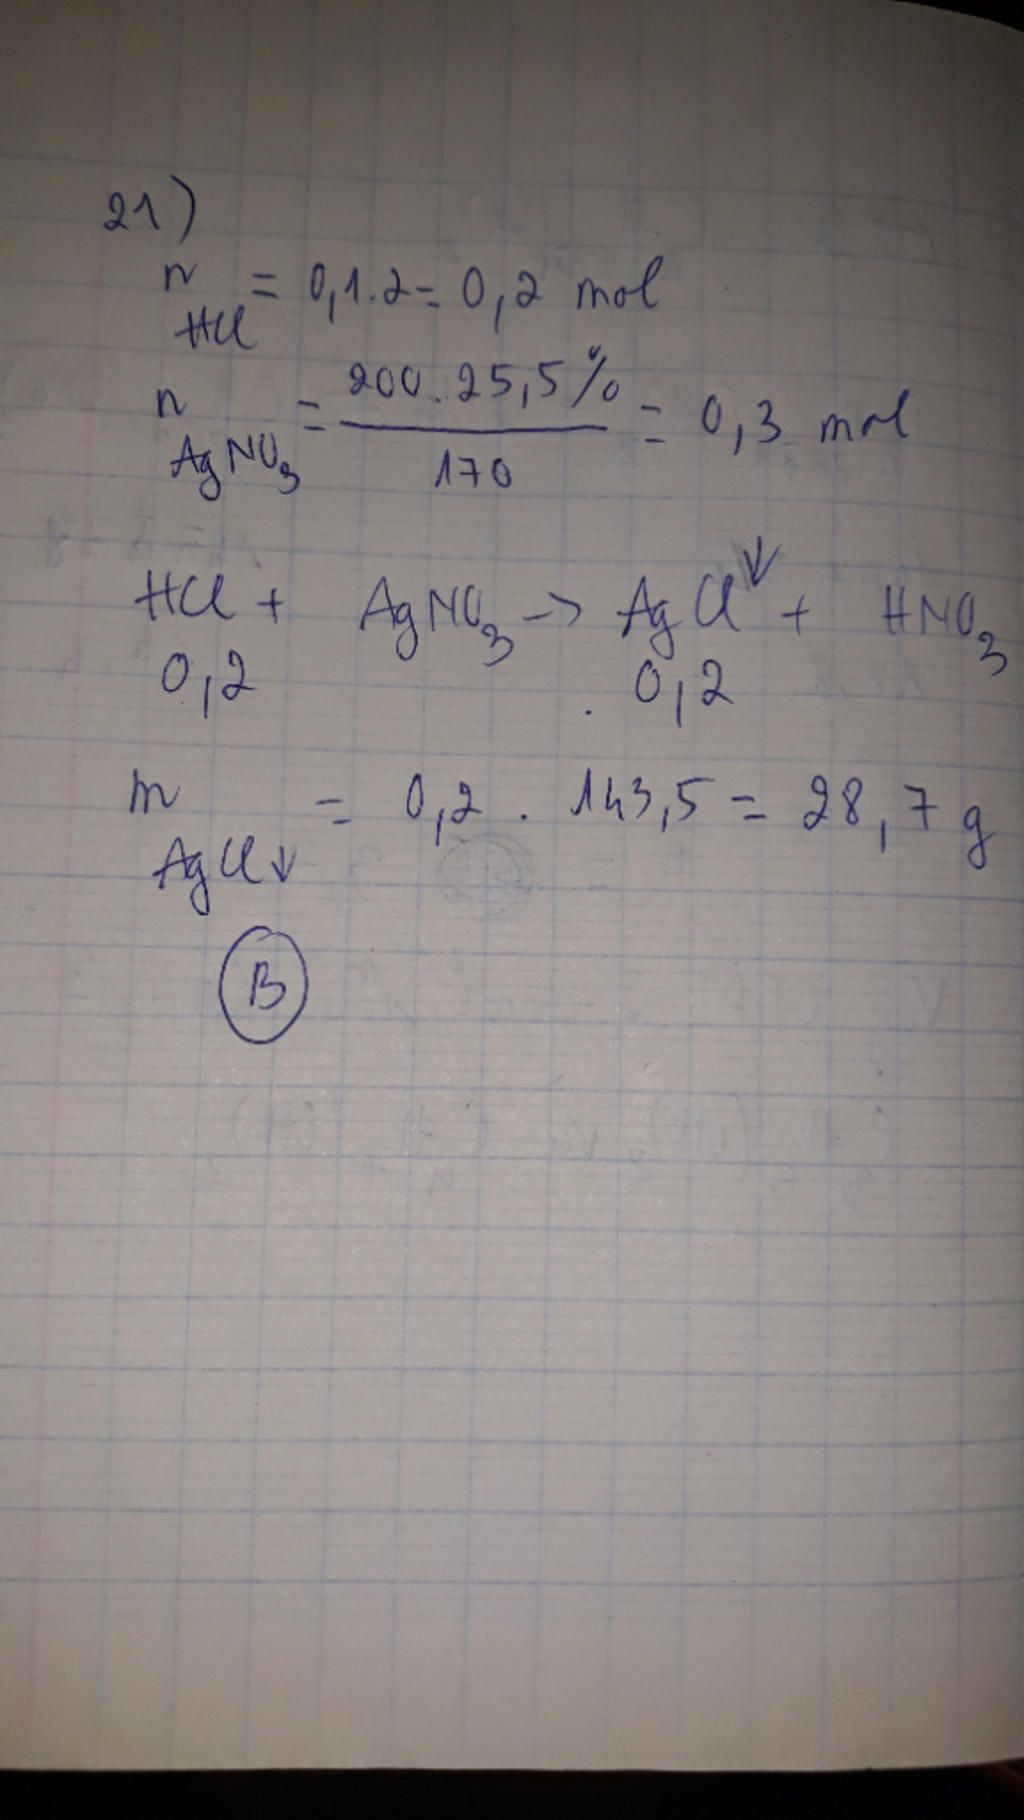 21)
n HCl = 0,1.2 = 0,2 mol
n AgNO3 = 200.25,5% / 170 = 0,3 mol
HCl + AgNO3 -> AgCl↓ + HNO3
0,2 0,2
m AgCl↓ = 0,2 . 143,5 = 28,7 g
B